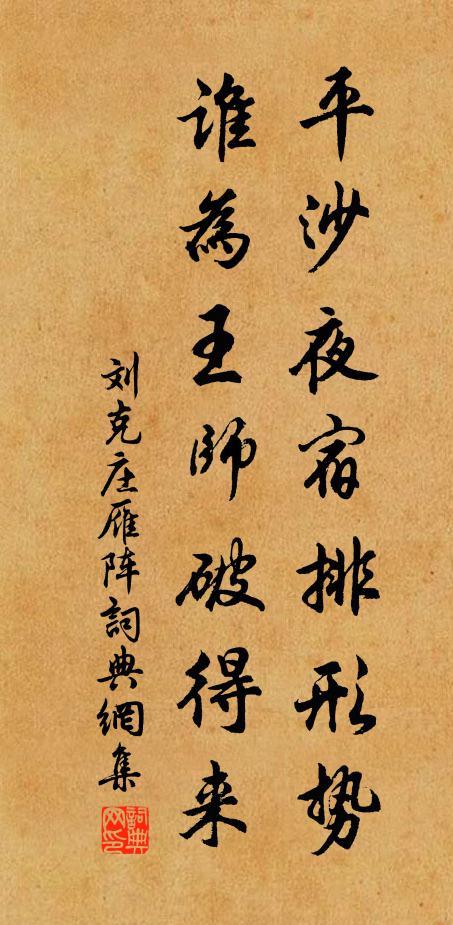 平沙夜宿排形势
谁為王師破得来
刘克庄雁阵詞典網集
詞典网印